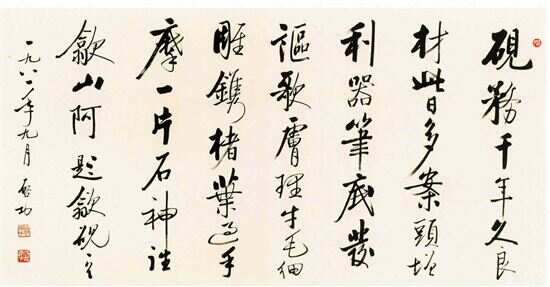 硯務千年久良
材此日多案頭增
利器筆底發
謳歌膚理牛毛細
雕鐫楮葉過手
摩一片石神往
歙山阿 題歙硯之
一九八二年九月 启功